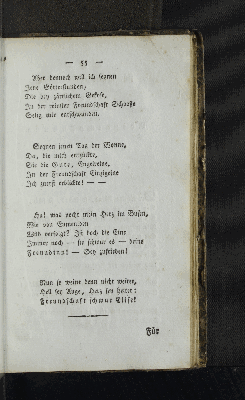 — 55 —
Aber dennoch will ich segnen
Jene Götterstunden,
Die bey zärtlichem Gekose,
In der reinsten Freundschaft Schooße
Selig mir entschwunden.
Segnen jenen Tag der Wonne,
Da, die mich entzückte,
Sie die Gute, Engelreine,
In der Freundschaft Einzigeine
Ich zuerst erblickte! — —
Ha! was pocht mein Herz im Busen,
Wie von Eumeniden
Wild verfolgt? Ist doch die Eine
Immer noch — sie schwur es — deine
Freundinn! — Sey zufrieden!
Nun so weine denn nicht weiter,
Hell sey Auge, Herz sey heiter:
Freundschaft schwur Elisek
Für